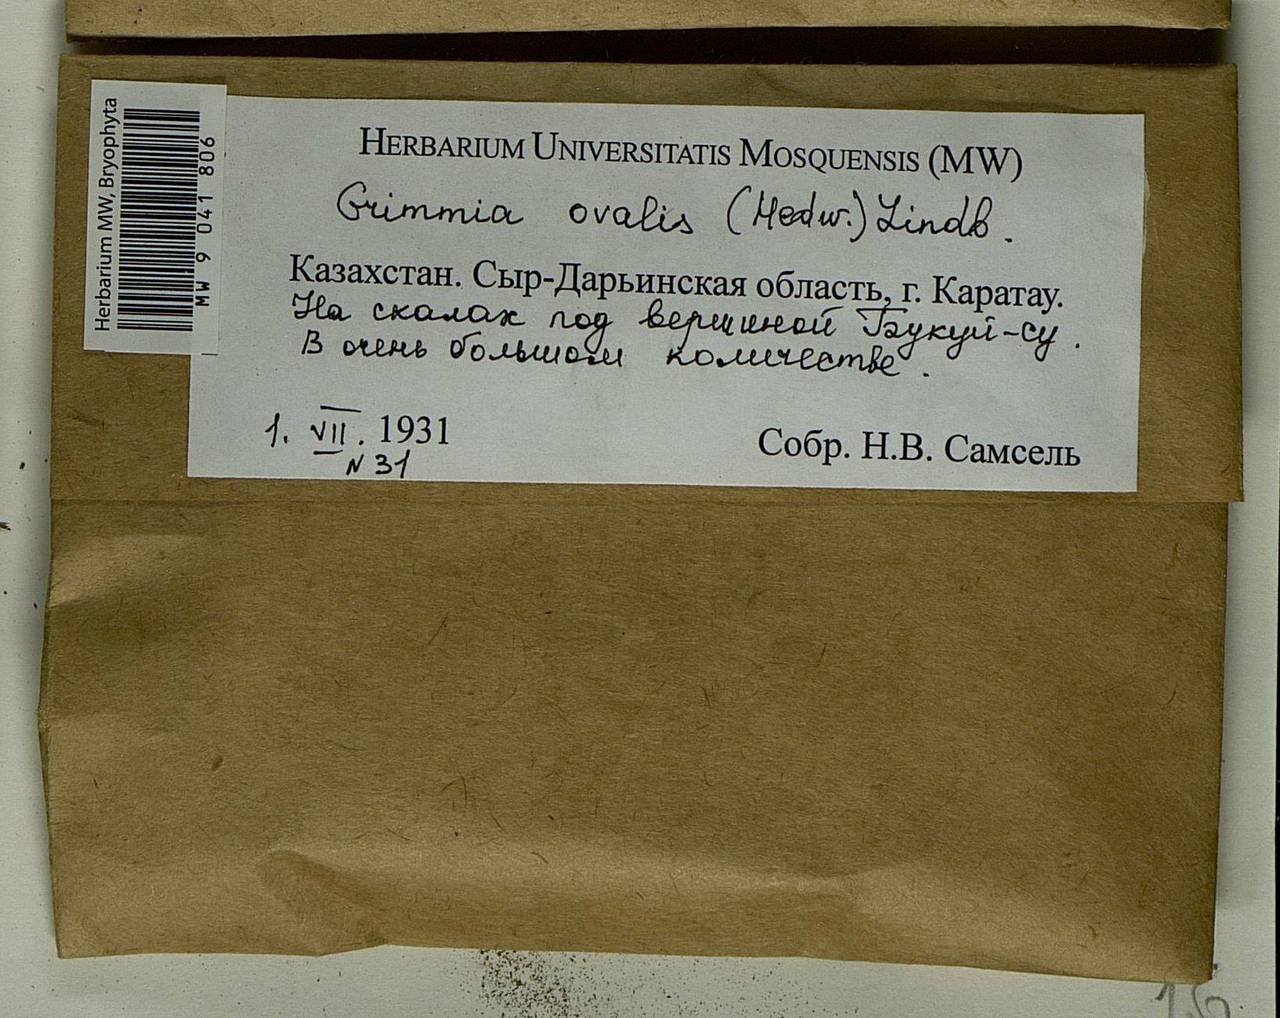 Herbarium MW, Bryophyta
MW 9 041 806
HERBARIUM UNIVERSITATIS MOSQUENSIS (MW)
Grimmia ovalis (Hedw.) Lindb.
Казахстан. Сыр-Дарьинская область, г. Каратау.
На скалах под вершиной Букуй-су.
В очень большом количестве.
1. VII. 1931
N 31
Собр. Н.В. Самсель